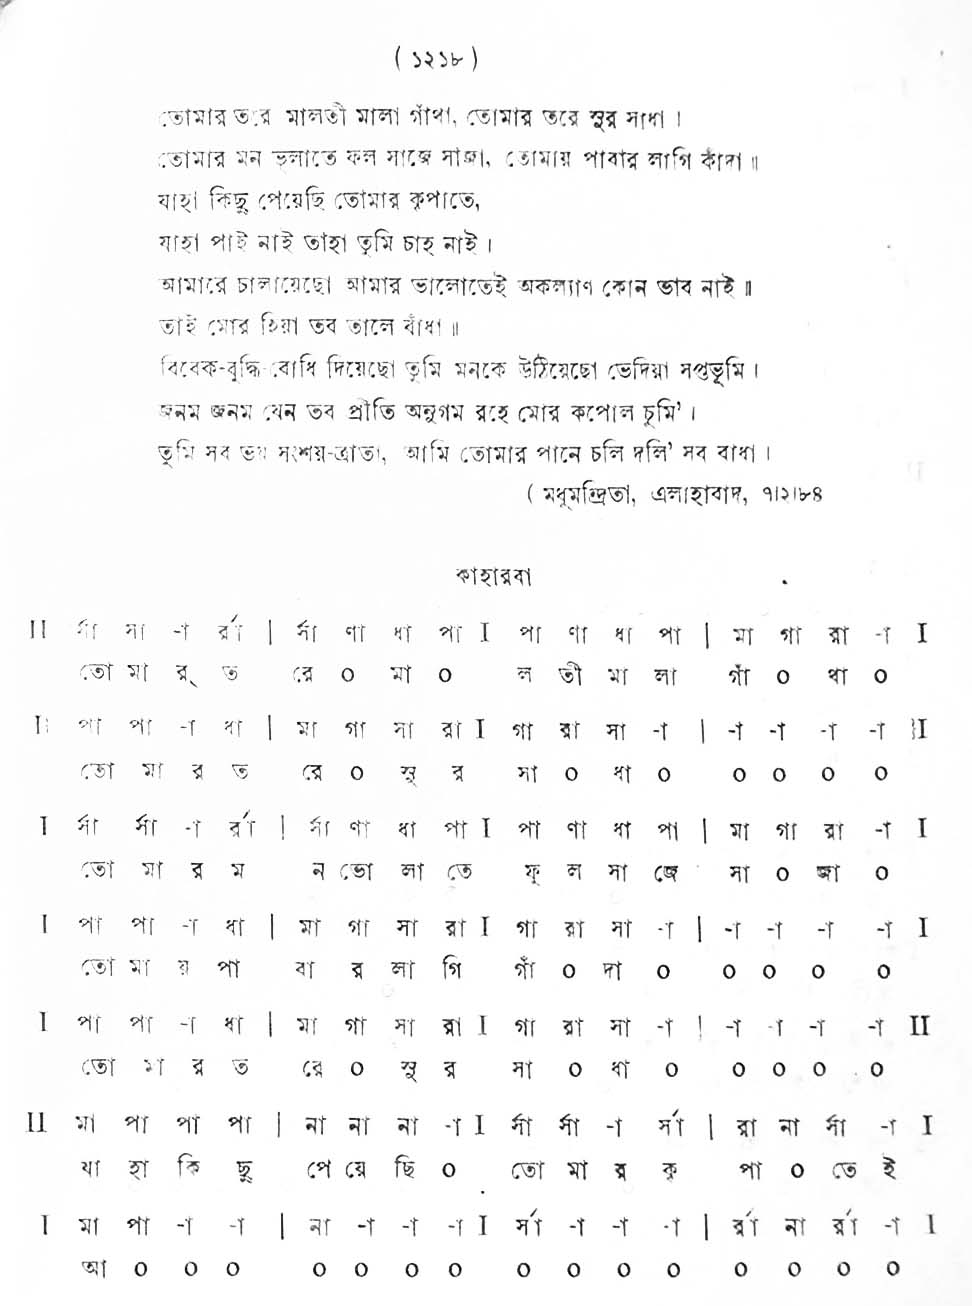 ( ১২১৮ )
তোমার তরে মালতী মালা গাঁথা, তোমার তরে সুর সাধা ।
তোমার মন ভুলাতে ফুল সাজে সাজা, তোমায় পাবার লাগি কাঁদা ॥
যাহা কিছু পেয়েছি তোমার কৃপাতে,
যাহা পাই নাই তাহা তুমি চাহ নাই ।
আমারে চালায়েছো আমার ভালোতেই অকল্যাণ কোন ভাব নাই ॥
তাই মোর হিয়া তব তালে বাঁধা ॥
বিবেক-বুদ্ধি-বোধি দিয়েছো তুমি মনকে উঠিয়েছো ভেদিয়া সপ্তভূমি ।
জনম জনম যেন তব প্রীতি অনুগম রহে মোর কপোল চুমি' ।
তুমি সব ভয় সংশয়-ত্রাতা, আমি তোমার পানে চলি দলি' সব বাধা ।
( মধুমন্দ্রিতা, এলাহাবাদ, ৭।২।৮৪
কাহারবা
II র্সা সা -া র্রা | র্সা ণা ধা পা I পা ণা ধা পা | মা গা রা -া I
তো মা র্ ত রে ০ মা ০ ল তী মা লা গাঁ ০ থা ০
I{ পা পা -া ধা | মা গা সা রা I গা রা সা -া | -া -া -া -া }I
তো মা র ত রে ০ সু র সা ০ ধা ০ ০ ০ ০ ০
I র্সা র্সা -া র্রা | র্সা ণা ধা পা I পা ণা ধা পা | মা গা রা -া I
তো মা র ম ন ভো লা তে ফু ল সা জে সা ০ জা ০
I পা পা -া ধা | মা গা সা রা I গা রা সা -া | -া -া -া -া I
তো মা য় পা বা র লা গি গাঁ ০ দা ০ ০ ০ ০ ০
I পা পা -া ধা | মা গা সা রা I গা রা সা -া | -া -া -া -া II
তো মা র ত রে ০ সু র সা ০ ধা ০ ০ ০ ০ ০
II মা পা পা পা | না না না -া I র্সা র্সা -া র্সা | রা না র্সা -া I
যা হা কি ছু পে য়ে ছি ০ তো মা র কৃ পা ০ তে ই
I মা পা -া -া | না -া -া -া I র্সা -া -া -া | র্রা না র্রা -া I
আ ০ ০ ০ ০ ০ ০ ০ ০ ০ ০ ০ ০ ০ ০ ০